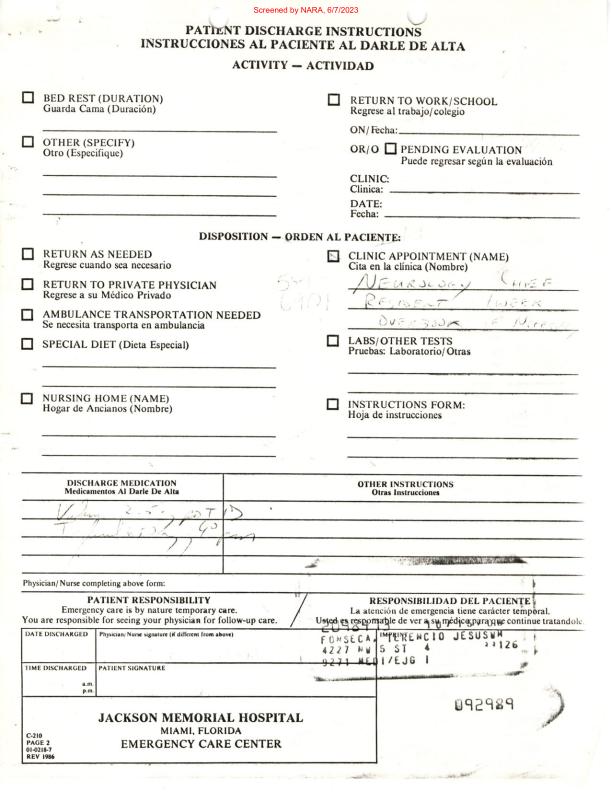 Screened by NARA, 6/7/2023
PATIENT DISCHARGE INSTRUCTIONS
INSTRUCCIONES AL PACIENTE AL DARLE DE ALTA
ACTIVITY — ACTIVIDAD
BED REST (DURATION)
Guarda Cama (Duración)
OTHER (SPECIFY)
Otro (Especifique)
RETURN TO WORK/SCHOOL
Regrese al trabajo/colegio
ON/Fecha:
OR/O PENDING EVALUATION
Puede regresar según la evaluación
CLINIC:
Clinica:
DATE:
Fecha:
DISPOSITION — ORDEN AL PACIENTE:
RETURN AS NEEDED
Regrese cuando sea necesario
RETURN TO PRIVATE PHYSICIAN
Regrese a su Médico Privado
AMBULANCE TRANSPORTATION NEEDED
Se necesita transporta en ambulancia
SPECIAL DIET (Dieta Especial)
NURSING HOME (NAME)
Hogar de Ancianos (Nombre)
CLINIC APPOINTMENT (NAME)
Cita en la clínica (Nombre)
NEUROLOGY CHIEF
RESIDENT 1 WEEK
OVERBOOK
LABS/OTHER TESTS
Pruebas: Laboratorio/Otras
INSTRUCTIONS FORM:
Hoja de instrucciones
DISCHARGE MEDICATION
Medicamentos Al Darle De Alta
OTHER INSTRUCTIONS
Otras Instrucciones
Physician/Nurse completing above form:
PATIENT RESPONSIBILITY
Emergency care is by nature temporary care.
You are responsible for seeing your physician for follow-up care.
RESPONSIBILIDAD DEL PACIENTE
La atención de emergencia tiene carácter temporal.
Usted es responsable de ver a su médico para que continue tratandolo
DATE DISCHARGED
Physician/Nurse signature (if different from above)
IMPRINT
FONSECA, TERENCIO JESUS
4227 NW 5 ST 4
9271 MEDI/EJG 1
TIME DISCHARGED
a.m.
p.m.
PATIENT SIGNATURE
092989
JACKSON MEMORIAL HOSPITAL
MIAMI, FLORIDA
EMERGENCY CARE CENTER
C-210
PAGE 2
01-0218-7
REV 1986